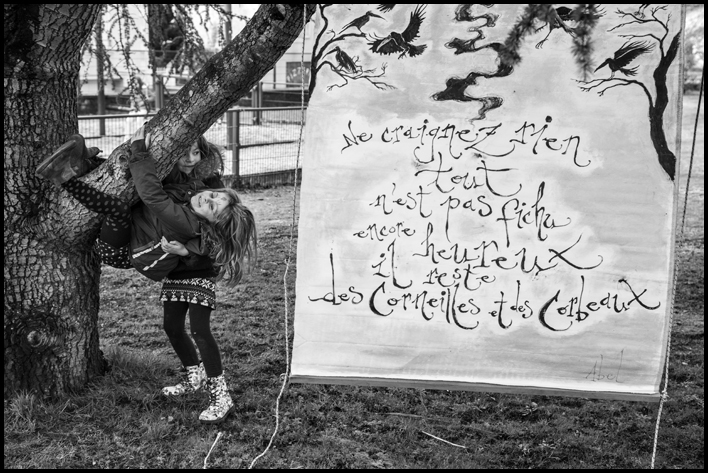 Ne craignez rien
tout
n'est pas fichu
encore heureux
il reste
des Corneilles et des Corbeaux
Abel